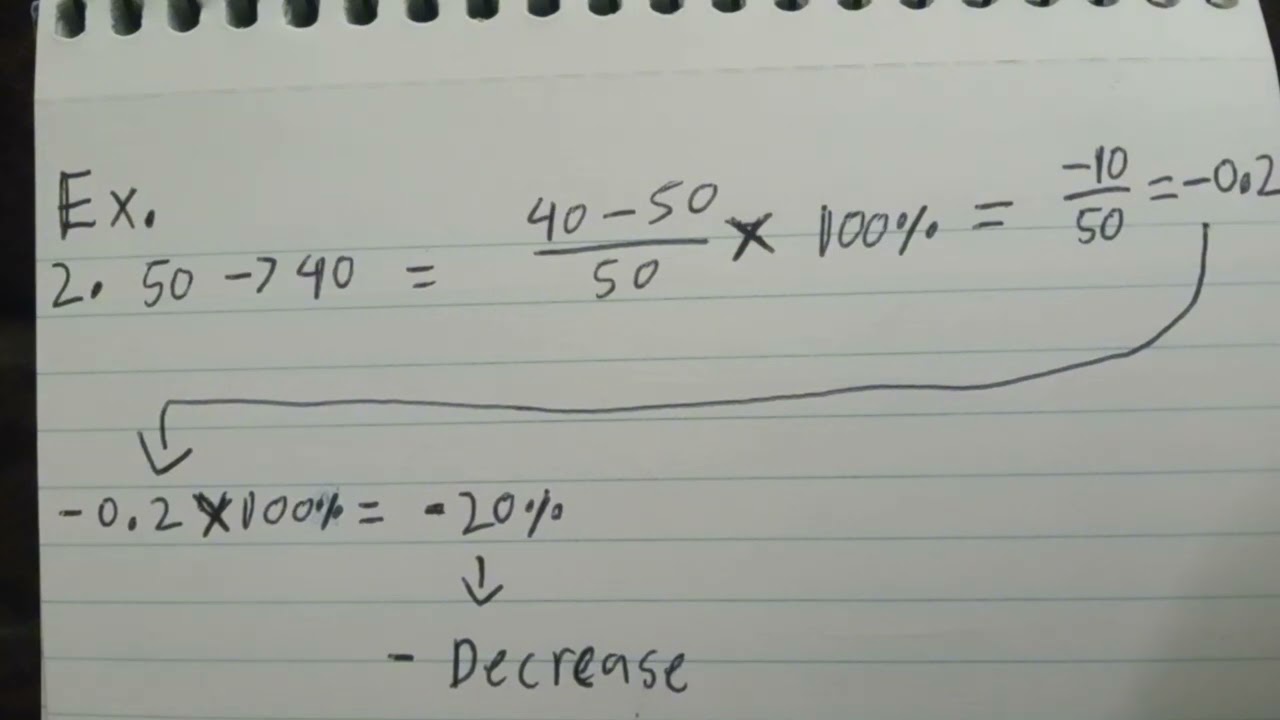 Ex.
2. 50 → 40 = (40 - 50)/50 × 100% = -10/50 = -0.2
-0.2 × 100% = -20%
↓
- Decrease